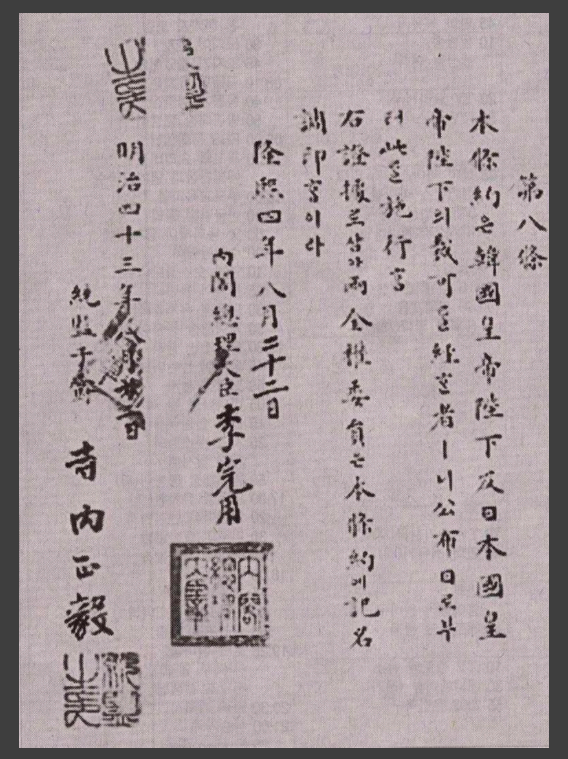 第八條
本條約은韓國皇帝陛下及日本國皇
帝陛下의裁可를經한者ㅣ니公布日로부
터此를施行홈
右證據로삼아兩全權委員은本條約에記名
調印홈이라
隆熙四年八月二十二日
內閣總理大臣李完用
明治四十三年八月廿二日
統監子爵
寺內正毅